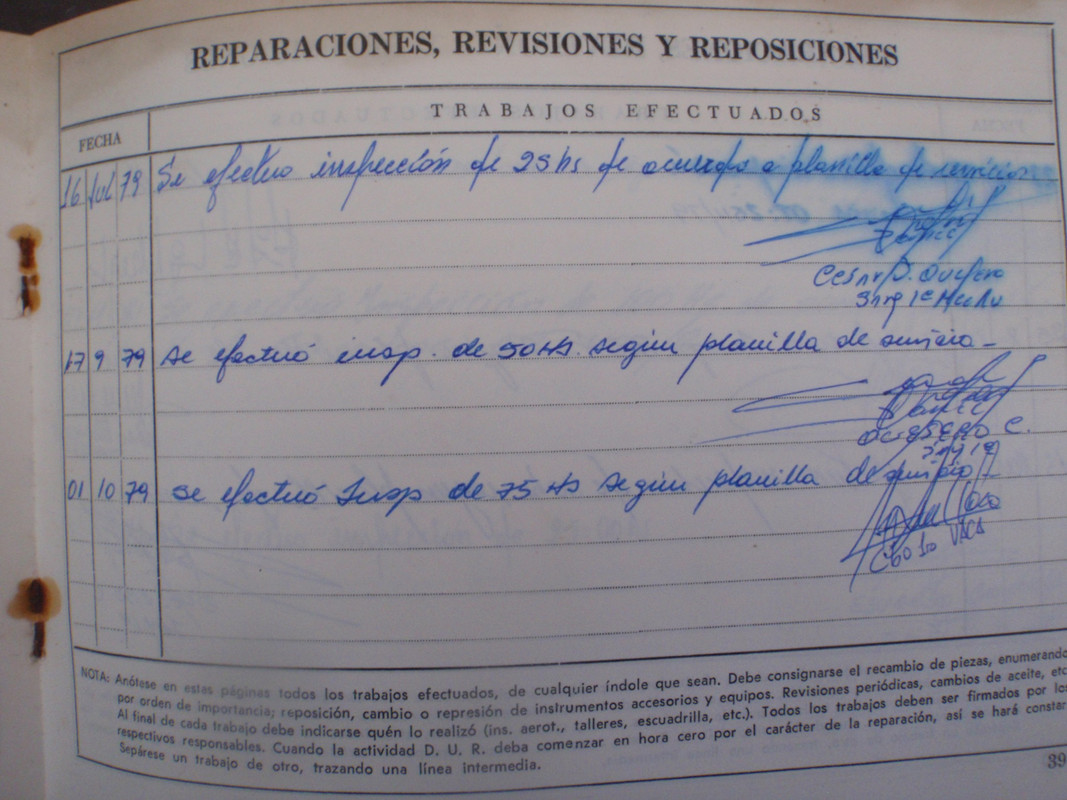 REPARACIONES, REVISIONES Y REPOSICIONES
FECHA
TRABAJOS EFECTUADOS
16 Jul 79 Se efectuo inspección de 25 hs de acuerdo a planilla de servicios
17 9 79 Se efectuó insp. de 50 Hs. según planilla de servicio -
01 10 79 Se efectuó Insp de 75 Hs según planilla de servicio
Cbo 1o VACA
NOTA: Anótese en estas páginas todos los trabajos efectuados, de cualquier índole que sean. Debe consignarse el recambio de piezas, enumerando
por orden de importancia; reposición, cambio o represión de instrumentos accesorios y equipos. Revisiones periódicas, cambios de aceite, etc
Al final de cada trabajo debe indicarse quén lo realizó (ins. aerot., talleres, escuadrilla, etc.). Todos los trabajos deben ser firmados por los
respectivos responsables. Cuando la actividad D. U. R. deba comenzar en hora cero por el carácter de la reparación, así se hará constar
Sepárese un trabajo de otro, trazando una línea intermedia.
39